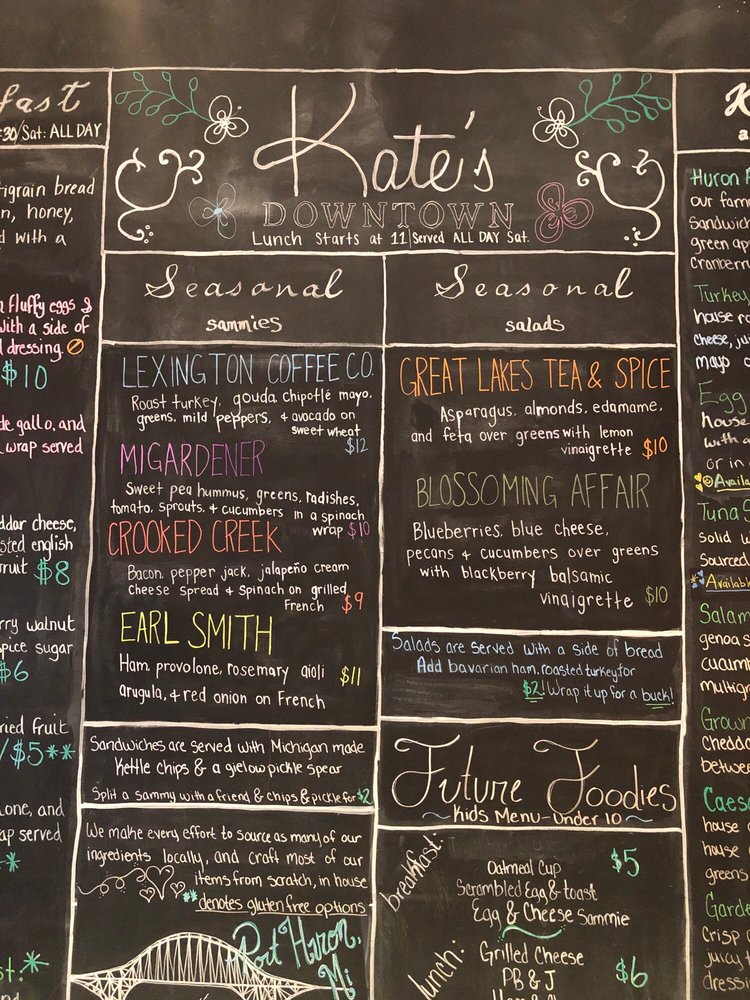 fast
:30/Sat: ALL DAY
tigrain bread
n, honey,
d with a
n fluffy eggs &
with a side of
dressing.
$10
de gallo, and
wrap served
ddar cheese,
sted english
fruit $8
rry walnut
pice sugar
$6
ried fruit
/$5**
one, and
ap served
*
st:*
Kate's
DOWNTOWN
Lunch Starts at 11|Served ALL DAY Sat.
Seasonal
sammies
LEXINGTON COFFEE CO.
Roast turkey, gouda, chipotlé mayo,
greens, mild peppers, & avocado on
sweet wheat
$12
MIGARDENER
Sweet pea hummus, greens, radishes,
tomato, sprouts, & cucumbers in a spinach
wrap $10
CROOKED CREEK
Bacon, pepper jack, jalapeño cream
cheese spread & spinach on grilled
French $9
EARL SMITH
Ham, provolone, rosemary aioli $11
arugula, & red onion on French
Sandwiches are served with Michigan made
Kettle chips & a gielow pickle spear
Split a sammy with a friend & chips & pickle for $2
We make every effort to source as many of our
ingredients locally, and craft most of our
items from scratch, in house
**denotes gluten free options
Port Huron,
Mi
Seasonal
salads
GREAT LAKES TEA & SPICE
Asparagus, almonds, edamame,
and feta over greens with lemon
vinaigrette $10
BLOSSOMING AFFAIR
Blueberries, blue cheese,
pecans & cucumbers over greens
with blackberry balsamic
vinaigrette $10
Salads are served with a side of bread
Add bavarian ham, roasted turkey for
$2! Wrap it up for a buck!
Future Foodies
~Kids Menu-Under 10~
breakfast:
Oatmeal Cup $5
Scrambled Egg & toast
Egg & Cheese Sammie
lunch:
Grilled Cheese
PB & J $6
K
a
Huron
our farm
Sandwic
green app
Cranberr
Turkey
house ro
cheese, jui
mayo
Egg
house
with
or in
Availa
Tuna S
solid w
Sourced
Available
Salam
genoa s
cucum
multig
Grow
chedda
betwee
Caes
house
house
greens
Garde
Crisp
juicy t
dressi